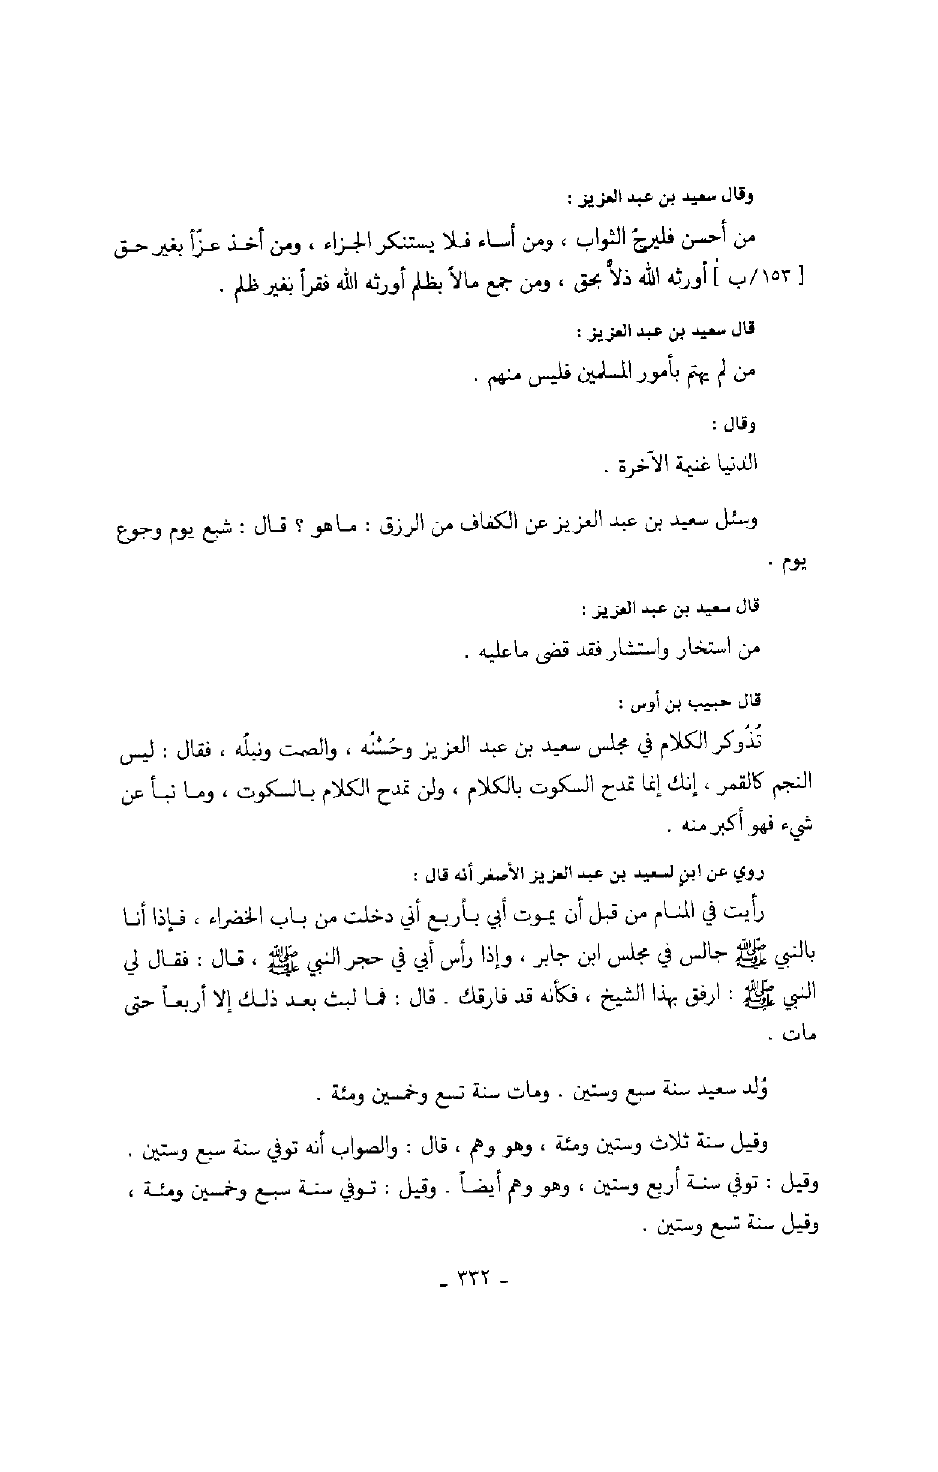 وقال سعيد بن عبد العزيز :
من أحسن فليرجُ الثواب ، ومن أساء فلا يستنكر الجزاء ، ومن أخذ عزّاً بغير حق
[ ١٥٣/ب ] أورثه الله ذلاً بحق ، ومن جمع مالاً بظلم أورثه الله فقراً بغير ظلم .
قال سعيد بن عبد العزيز :
من لم يهتم بأمور المسلمين فليس منهم .
وقال :
الدنيا غنيمة الآخرة .
وسئل سعيد بن عبد العزيز عن الكفاف من الرزق : ماهو ؟ قال : شبع يوم وجوع
يوم .
قال سعيد بن عبد العزيز :
من استخار واستشار فقد قضى ماعليه .
قال حبيب بن أوس :
تُذُوكر الكلام في مجلس سعيد بن عبد العزيز وحُسْنُه ، والصمت ونبلُه ، فقال : ليس
النجم كالقمر ، إنك إنما تمدح السكوت بالكلام ، ولن تمدح الكلام بالسكوت ، وما نبأ عن
شيء فهو أكبر منه .
روي عن ابنٍ لسعيد بن عبد العزيز الأصغر أنه قال :
رأيت في المنام من قبل أن يموت أبي بأربع أني دخلت من باب الخضراء ، فإذا أنا
بالنبي ﷺ جالس في مجلس ابن جابر ، وإذا رأس أبي في حجر النبي ﷺ ، قال : فقال لي
النبي ﷺ : ارفق بهذا الشيخ ، فكأنه قد فارقك . قال : فما لبث بعد ذلك إلا أربعاً حتى
مات .
وُلد سعيد سنة سبع وستين . ومات سنة تسع وخمسين ومئة .
وقيل سنة ثلاث وستين ومئة ، وهو وهم ، قال : والصواب أنه توفي سنة سبع وستين .
وقيل : توفي سنة أربع وستين ، وهو وهم أيضاً . وقيل : توفي سنة سبع وخمسين ومئة ،
وقيل سنة تسع وستين .
- ٣٣٢ -